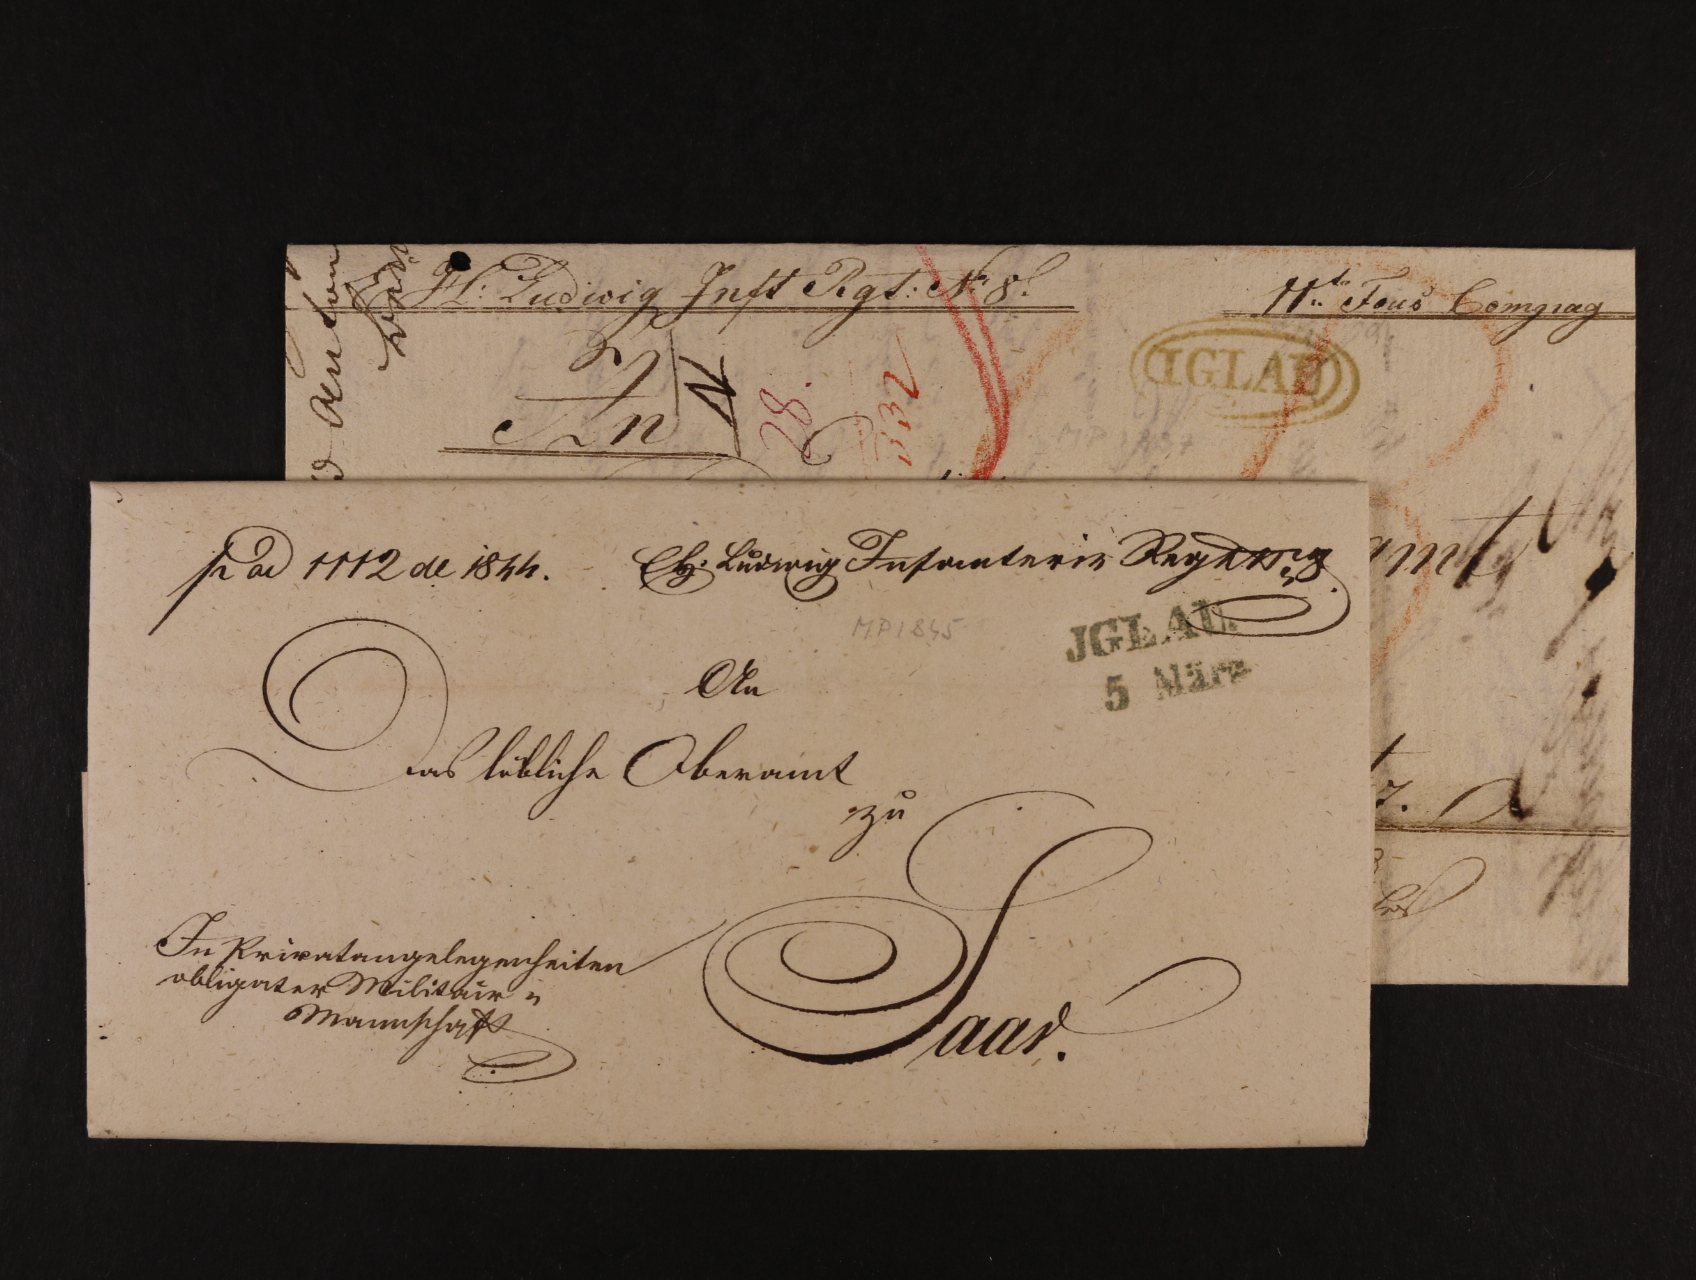 H: Ludwig Inft Rgt: No 8.
11te Feus Compag
IGLAU
An
28.
332
amt
ad 1112 de 1844.
EH: Ludwig Infanterie Regt No 8
MP1845
JGLAU.
5 März
An
Das löbliche Oberamt
zu
Saar.
In Privatangelegenheiten
obligater Militair
Mannschaft